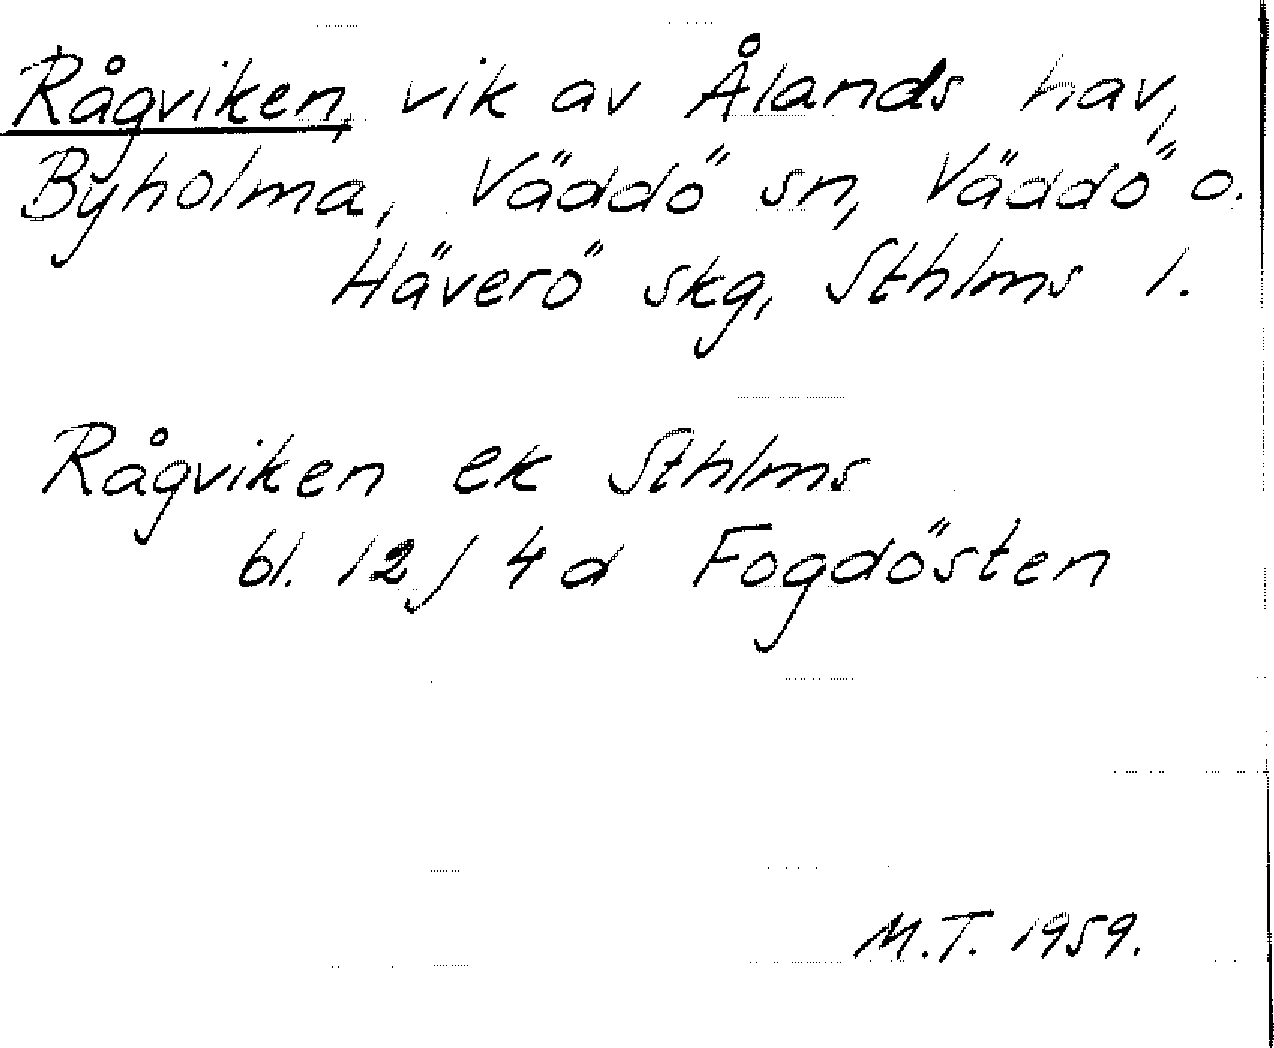 Rågviken, vik av Ålands hav,
Byholma, Väddö sn, Väddö o.
Häverö skg, Sthlms l.
Rågviken ek Sthlms
bl. 12J 4d Fogdösten
M.T. 1959.